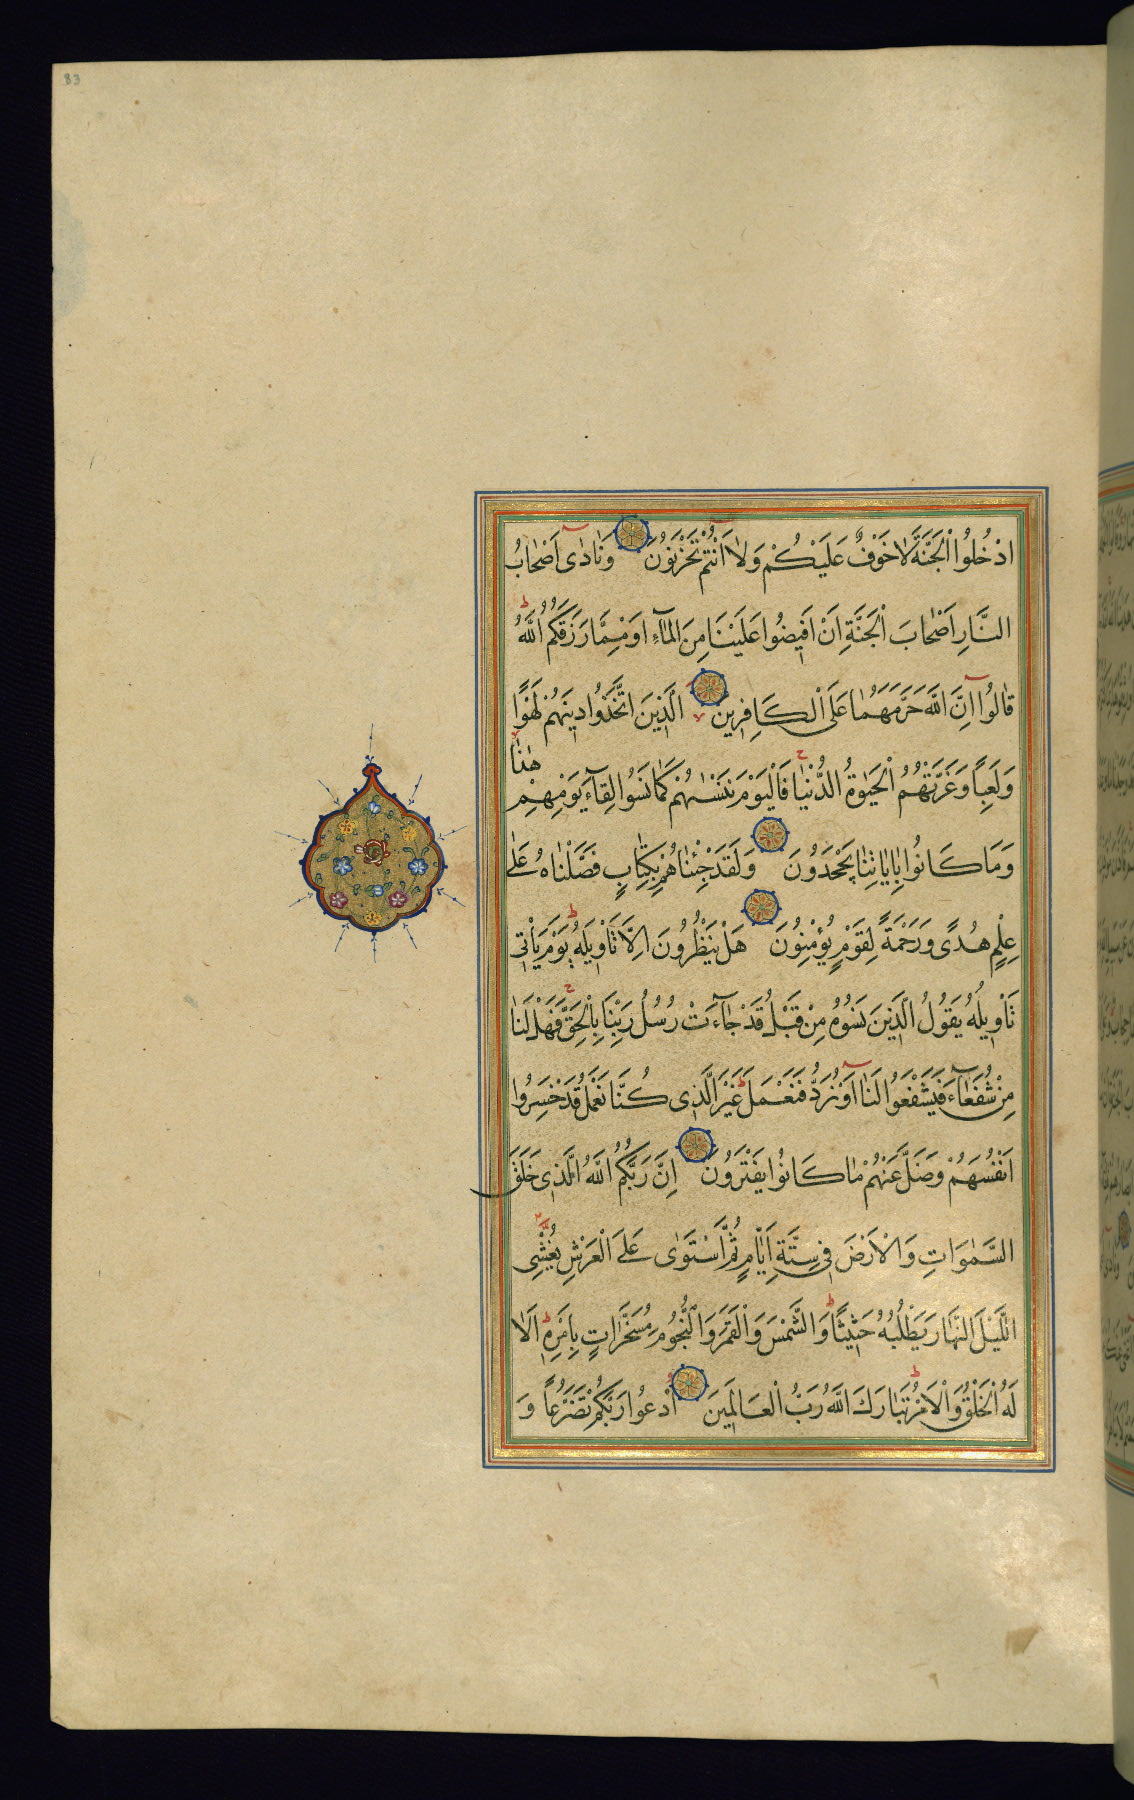 83
ادْخُلُوا الْجَنَّةَ لَا خَوْفٌ عَلَيْكُمْ وَلَا اَنْتُمْ تَحْزَنُونَ وَنَادٰى اَصْحَابُ
النَّارِ اَصْحَابَ الْجَنَّةِ اَنْ اَفِيضُوا عَلَيْنَا مِنَ الْمَآءِ اَوْ مِمَّا رَزَقَكُمُ اللّٰهُ
قَالُوا اِنَّ اللّٰهَ حَرَّمَهُمَا عَلَى الْكَافِرِينَ الَّذِينَ اتَّخَذُوا دِينَهُمْ لَهْوًا
وَلَعِبًا وَغَرَّتْهُمُ الْحَيٰوةُ الدُّنْيَا فَالْيَوْمَ نَنْسٰىهُمْ كَمَا نَسُوا لِقَآءَ يَوْمِهِمْ هٰذَا
وَمَا كَانُوا بِاٰيَاتِنَا يَجْحَدُونَ وَلَقَدْ جِئْنَاهُمْ بِكِتَابٍ فَصَّلْنَاهُ عَلٰى
عِلْمٍ هُدًى وَرَحْمَةً لِقَوْمٍ يُؤْمِنُونَ هَلْ يَنْظُرُونَ اِلَّا تَاْوِيلَهُ يَوْمَ يَاْتِى
تَاْوِيلُهُ يَقُولُ الَّذِينَ نَسُوهُ مِنْ قَبْلُ قَدْ جَآءَتْ رُسُلُ رَبِّنَا بِالْحَقِّ فَهَلْ لَنَا
مِنْ شُفَعَآءَ فَيَشْفَعُوا لَنَا اَوْ نُرَدُّ فَنَعْمَلَ غَيْرَ الَّذِى كُنَّا نَعْمَلُ قَدْ خَسِرُوا
اَنْفُسَهُمْ وَضَلَّ عَنْهُمْ مَا كَانُوا يَفْتَرُونَ اِنَّ رَبَّكُمُ اللّٰهُ الَّذِى خَلَقَ
السَّمٰوَاتِ وَالْاَرْضَ فِى سِتَّةِ اَيَّامٍ ثُمَّ اسْتَوٰى عَلَى الْعَرْشِ يُغْشِى
الَّيْلَ النَّهَارَ يَطْلُبُهُ حَثِيثًا وَالشَّمْسَ وَالْقَمَرَ وَالنُّجُومَ مُسَخَّرَاتٍ بِاَمْرِهِ اَلَا
لَهُ الْخَلْقُ وَالْاَمْرُ تَبَارَكَ اللّٰهُ رَبُّ الْعَالَمِينَ اُدْعُوا رَبَّكُمْ تَضَرُّعًا وَ